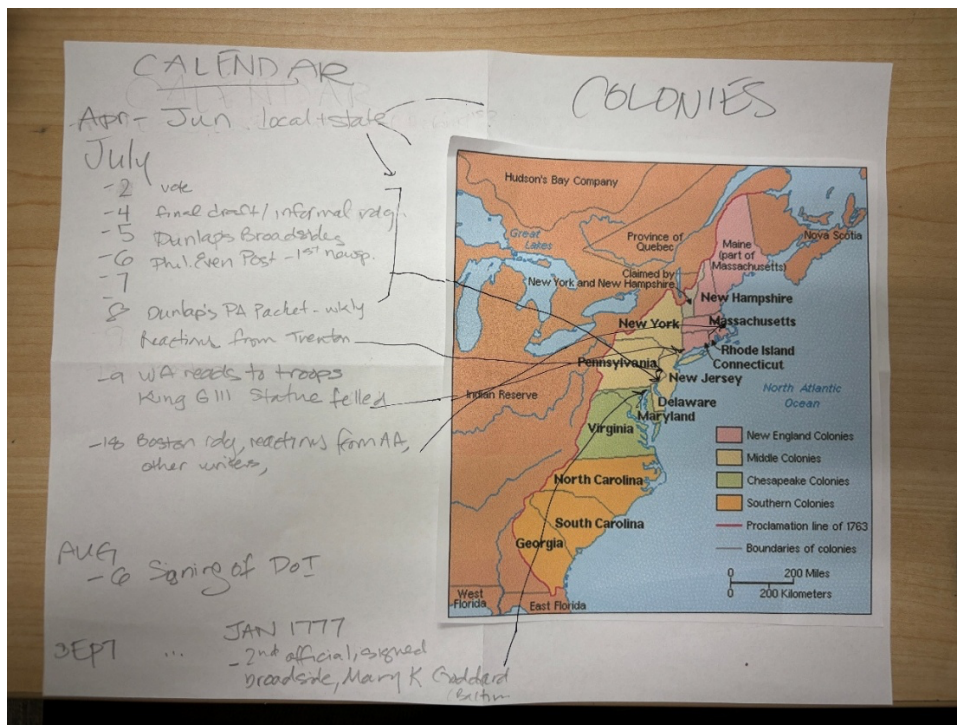 CALENDAR
Apr - Jun local + state
July
-2 vote
-4 final draft / informal rdg.
-5 Dunlap's Broadsides
-6 Phil. Even Post - 1st newsp.
-7
8 Dunlap's PA Packet - wkly
Reactions from Trenton
-9 WA reads to troops
King G III Statue felled
-18 Boston rdg, reactions from AA,
other writers,
AUG
-6 Signing of DoI
SEPT ...
JAN 1777
- 2nd official, signed
broadside, Mary K Goddard
(Baltim
COLONIES
Hudson's Bay Company
Great
Lakes
Province of
Quebec
Nova Scotia
Maine
(part of
Massachusetts)
Claimed by
New York and New Hampshire
New Hampshire
New York
Massachusetts
Rhode Island
Connecticut
Pennsylvania
New Jersey
Indian Reserve
Delaware
Maryland
North Atlantic
Ocean
Virginia
North Carolina
South Carolina
Georgia
West
Florida
East Florida
New England Colonies
Middle Colonies
Chesapeake Colonies
Southern Colonies
Proclamation line of 1763
Boundaries of colonies
0 200 Miles
0 200 Kilometers